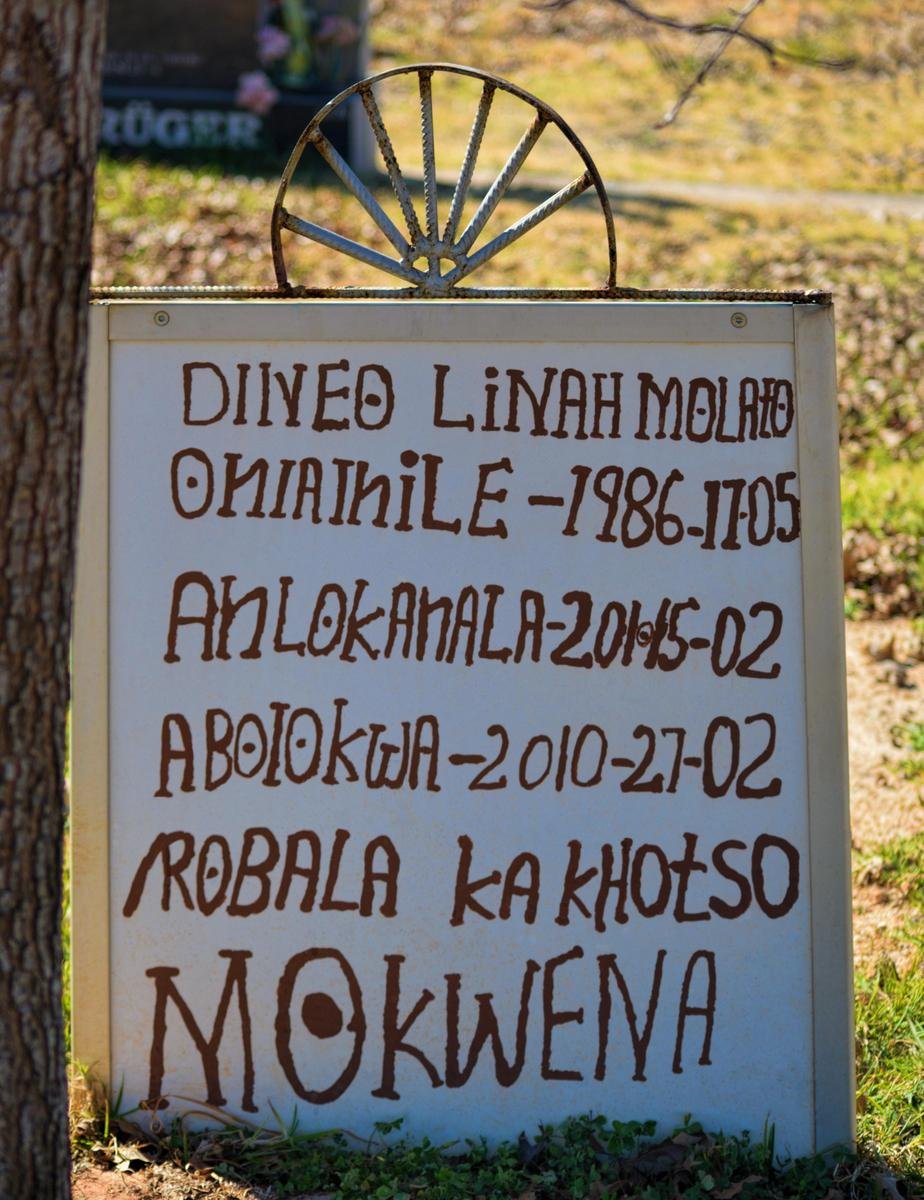 RÜGER
DINEO LiNAH MOLATO
ONTATHiLE -1986-17-05
AHLOKAHALA-2014-15-02
ABOLOKWA-2010-27-02
ROBALA KA KHOTSO
MOKWENA